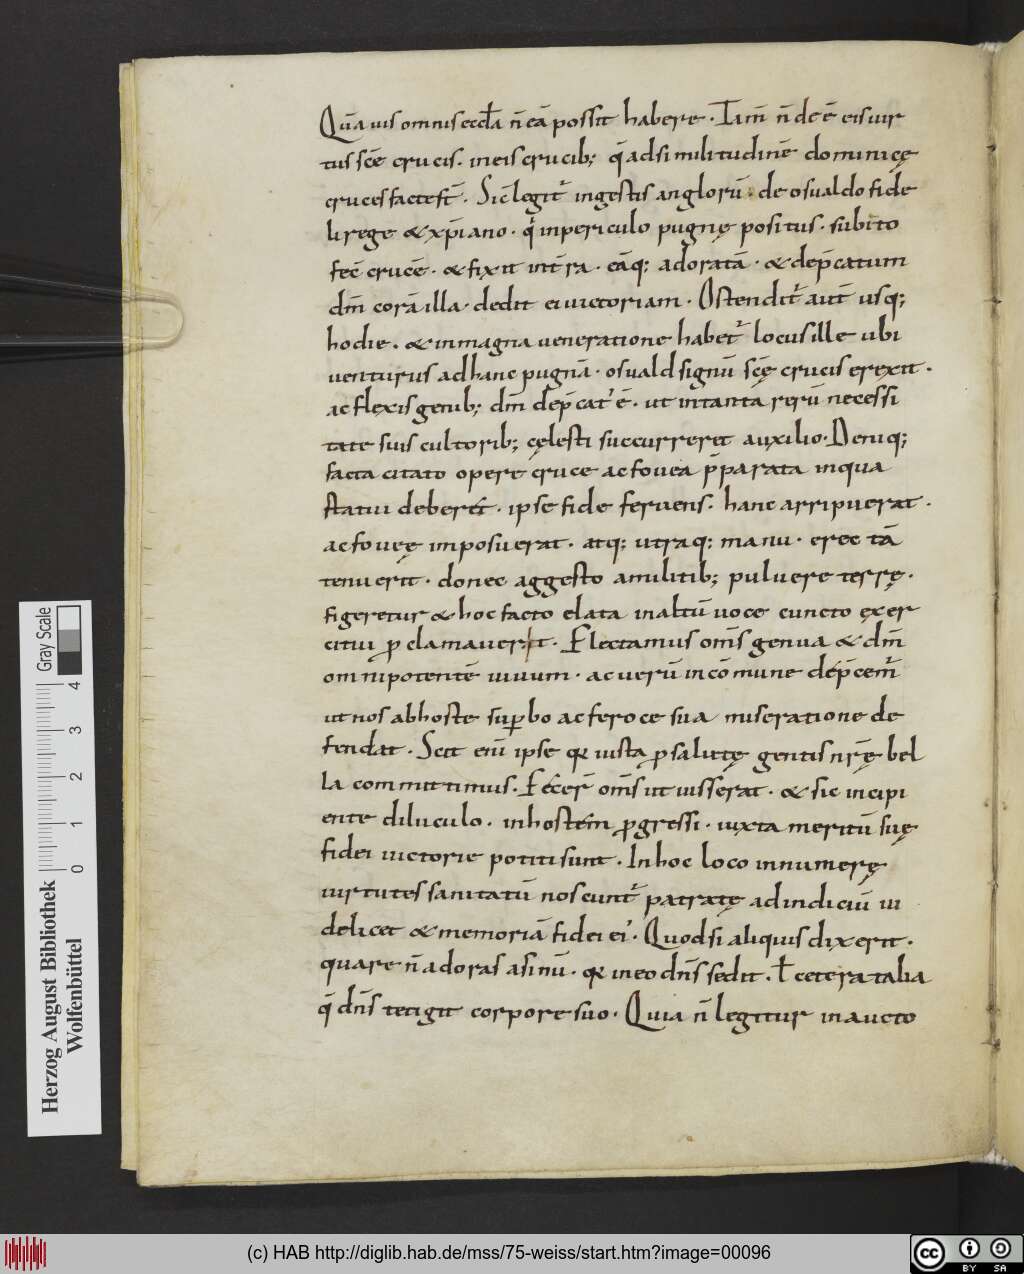 Quāuis omnis eccła n̄ eā possit habere. Iam̄ n̄ dēē eis uir
tus scē crucis. in eis crucib; q̄ ad similitudinē dominicę
cruces facte st̄. Sic̄ legit᷑ in gestis anglorū. de osualdo fide
li rege & xp̄iano. q̓ in periculo pugnę positus. subito
fec̄ crucē. & fixit in t̄ra. eāq; adoratā. & dep̄catum
dm̄ corā illa. dedit ei uictoriam. Ostendit᷑ aut̄ usq;
hodie. & in magna ueneratione habet᷑ locus ille ubi
uenturus ad hanc pugnā. osuald signū scę crucis erexit.
ac flexis genib; dm̄ dep̄cat᷑ ē. ut in tanta rerū necessi
tate suis cultorib; cęlesti succurreret auxilio. Deniq;
facta citato opere cruce ac fouea p̄parata in qua
statui deberet. ipse fide feruens. hanc arripuerat.
ac foueę imposuerat. atq; utraq; manu. erectā
tenuerit. donec aggesto a militib; puluere terrę.
figeretur & hoc facto elata in altū uoce cuncto ęxer
citui ꝓclamauerit. Flectamus om̄s genua & dm̄
omnipotentē uiuum. ac uerū in cōmune dep̄cem᷑
ut nos ab hoste suꝑbo ac feroce sua miseratione de
fendat. Scit eni̅ ipse qr̄ iusta ꝓ salutę gentis nr̄ę bel
la committimus. Fecer̄ om̄s ut iusserat. & sic incipi
ente diluculo. in hostem ꝓgressi. iuxta meritū suę
fidei uictorie potiti sunt. In hoc loco innumerę
uirtutes sanitatū noscunt᷑ patratę ad indiciū ui
delicet & memoriā fidei ei᷒. Quod si aliquis dixerit.
quare n̄ adoras asinū. qr̄ in eo dn̄s sedit. ł cetera talia
q̄ dn̄s tetigit corpore suo. Quia n̄ legitur in aucto
Gray Scale
0 1 2 3 4
Herzog August Bibliothek
Wolfenbüttel
(c) HAB http://diglib.hab.de/mss/75-weiss/start.htm?image=00096
cc BY SA